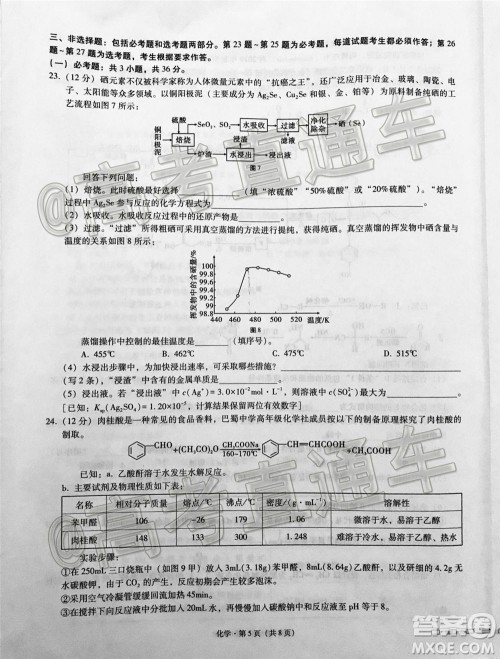 三、非选择题：包括必考题和选考题两部分。第 23 题~第 25 题为必考题，每道试题考生都必须作答；第 26
题~第 27 题为选考题，考生根据要求作答。
（一）必考题：共 3 小题，共 36 分。
23.（12 分）硒元素不仅被科学家称为人体微量元素中的“抗癌之王”，还被广泛应用于冶金、玻璃、陶瓷、电
子、太阳能等众多领域。以铜阳极泥（主要成分为 Ag₂Se、Cu₂Se 和银、金、铂等）为原料制备纯硒的工
艺流程如图 7 所示：
铜阳极泥
硫酸
焙烧
SeO₂、SO₂
水吸收
过滤
净化除杂
硒（Se）
炉渣
水浸出
浸渣
浸出液
图 7
回答下列问题：
（1）焙烧。此时硫酸最好用 （填“浓硫酸”“50%硫酸”或“20%硫酸”）。焙烧过程
中，Ag₂Se 参与反应的化学方程式为 。
（2）水吸收。水吸收过程中的还原产物是 。
（3）过滤。“过滤”所得的粗硒可采用真空蒸馏的方法进行提纯，获得纯硒。真空蒸馏的挥发物中硒含量
与温度的关系如图 8 所示：
挥发物中的含硒量/%
100
99.98
99.96
99.94
99.92
99.90
99.88
440 460 480 500 520 温度/K
图 8
蒸馏操作中控制的最佳温度是 （填序号）。
A. 455℃ B. 462℃ C. 475℃ D. 515℃
（4）水浸出步骤中，为加快浸出速率，可采取哪些措施？
（写 2 条），“浸渣”中贵重的金属单质是 。
（5）若“浸出液”中 c(Ag⁺)=3.0×10⁻² mol·L⁻¹，则浸出液中 c(SO₄²⁻)= 。
[已知：Ksp(Ag₂SO₄)=1.20×10⁻⁵，计算结果保留两位有效数字]
24.（12 分）肉桂酸是一种常见的食品香料，巴蜀中学高年级化学社成员按以下的制备原理探究了肉桂酸
的制取。
CHO +(CH₃CO)₂O CH₃COONa 160~170℃ CH=CHCOOH +CH₃COOH
已知：a. 乙酸酐溶于水发生水解反应。
b. 主要试剂及物理性质如下表：
名称 相对分子质量 熔点/℃ 沸点/℃ 密度/(g·mL⁻¹) 溶解性
苯甲醛 106 -26 179 1.06 微溶于水，易溶于乙醇
肉桂酸 148 133 300 1.248 难溶于冷水，易溶于乙醇、热水
实验步骤：
①在 250mL 三口烧瓶中（如图 9 甲）放入 3mL(3.18g) 苯甲醛、8mL(8.64g) 乙酸酐，以及研细的 4.2g 无
水碳酸钾，由于 CO₂ 的产生，反应初期会发生较多泡沫。
②采用空气冷凝管缓缓回流加热 45min。
③在搅拌下向反应液中加入 20mL 水，再慢慢加入碳酸钠中和反应液至 pH 等于 8。
化学·第 5 页（共 8 页）
高考直通车
高考直通车